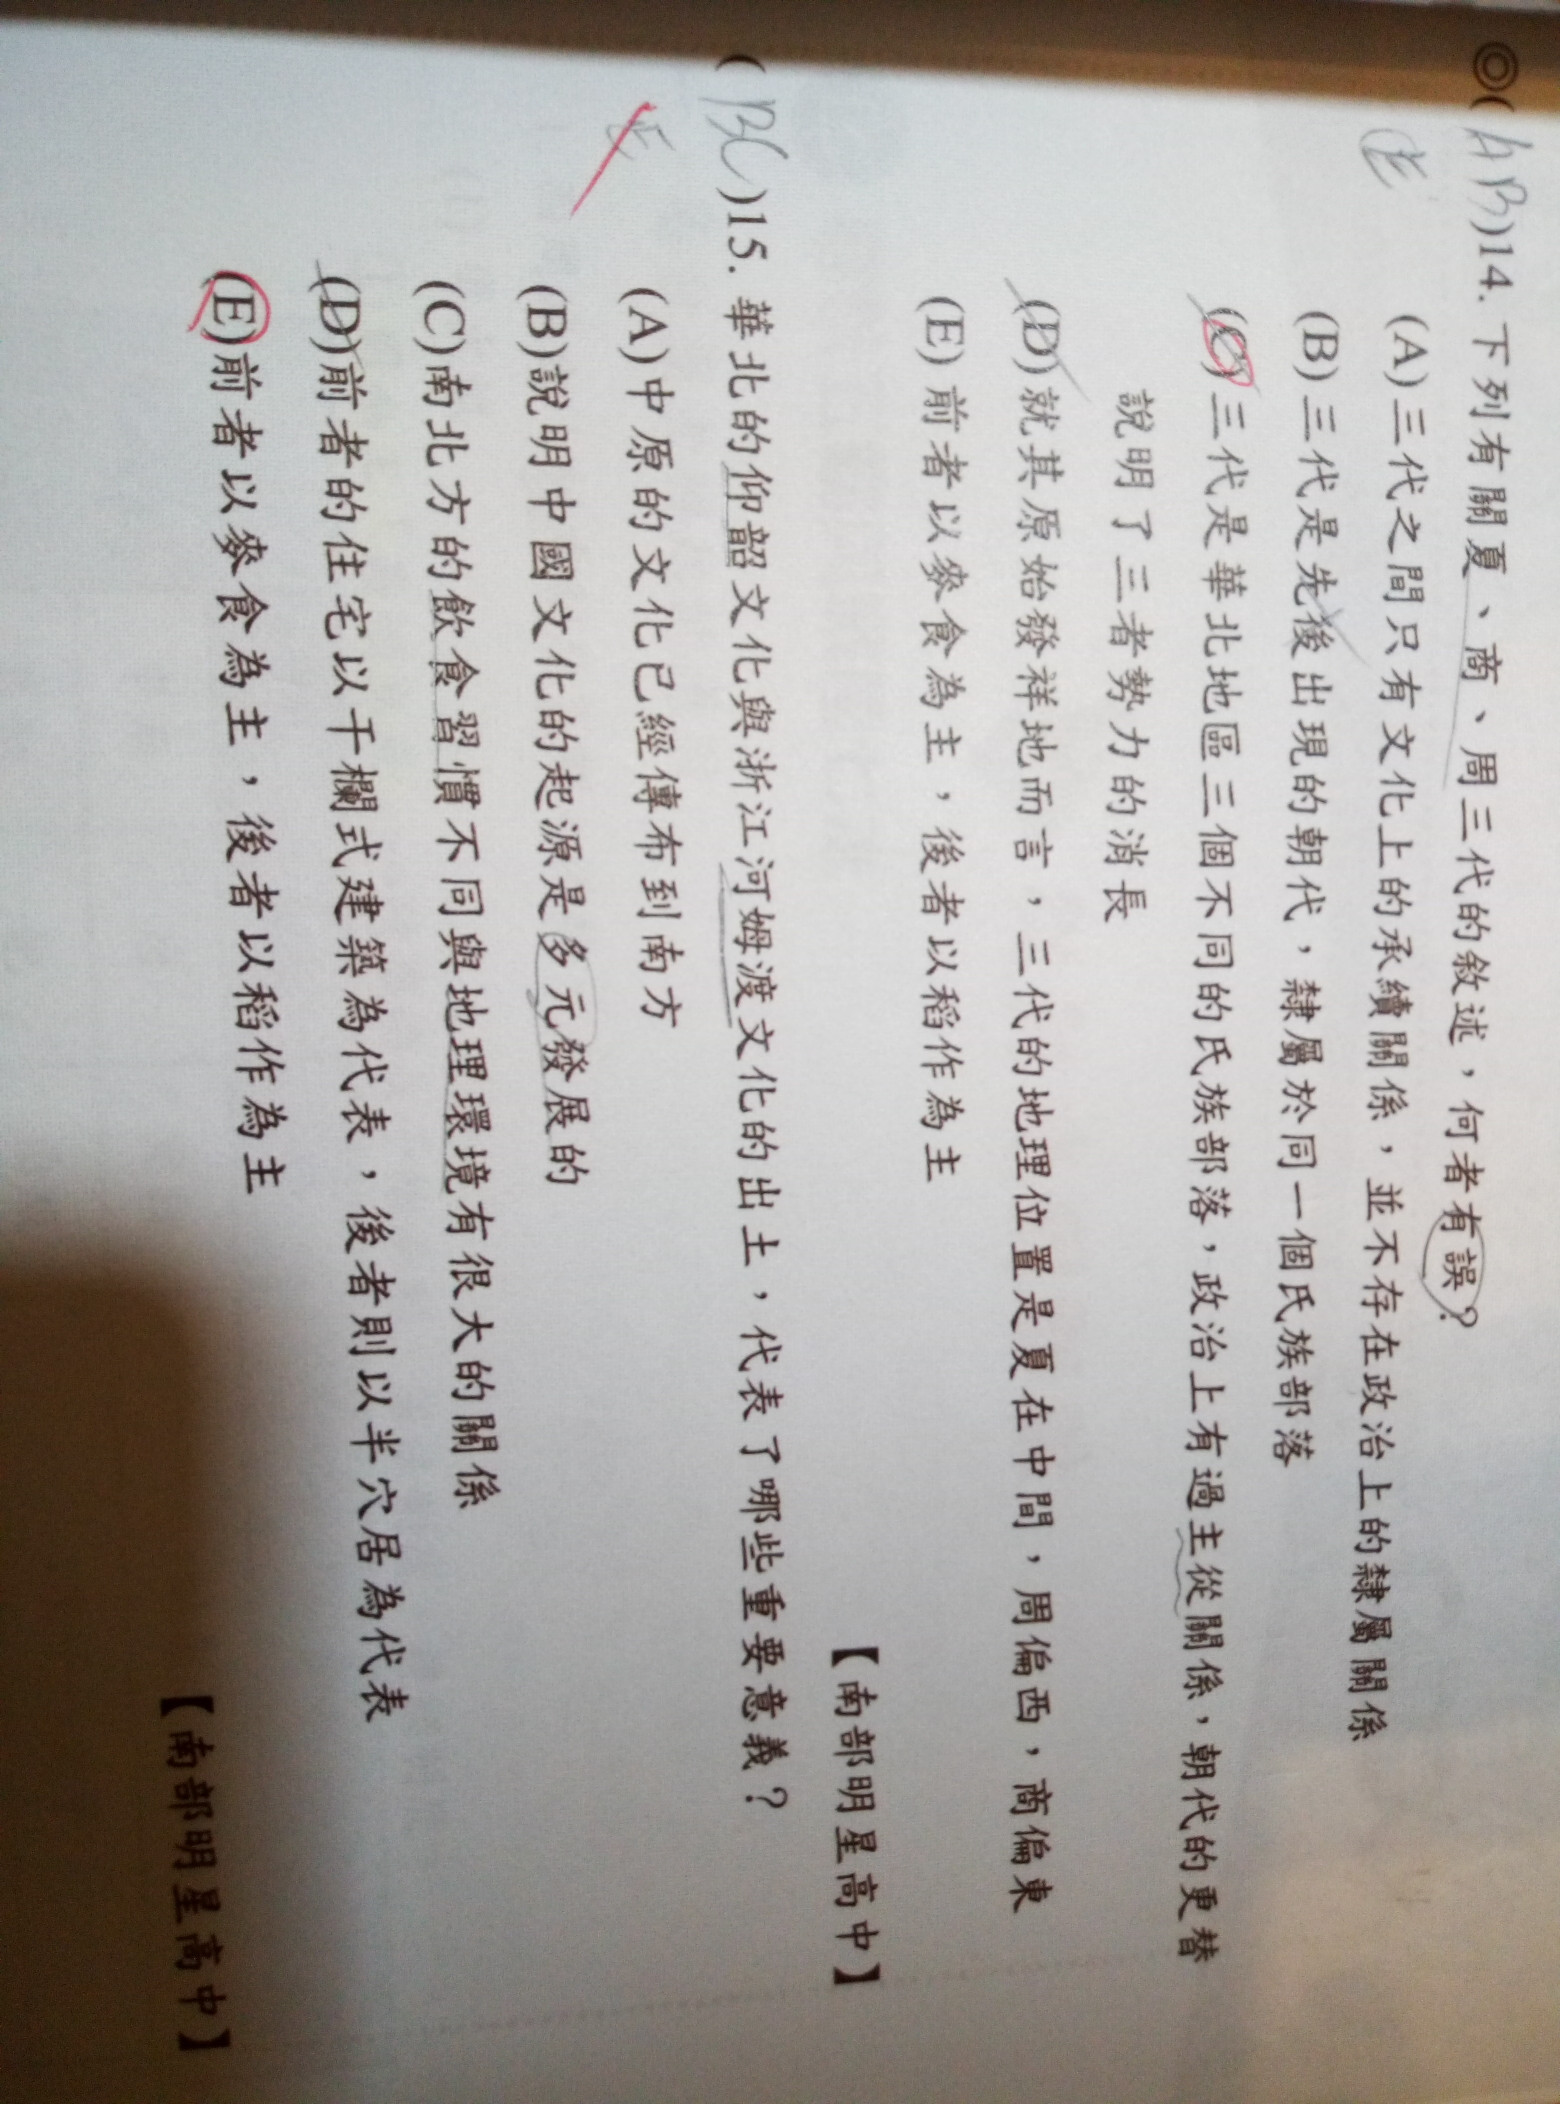 ◎(AB)14. 下列有關夏、商、周三代的敘述，何者有誤？
(E)
(A)三代之間只有文化上的承續關係，並不存在政治上的隸屬關係
(B)三代是先後出現的朝代，隸屬於同一個氏族部落
(C)三代是華北地區三個不同的氏族部落，政治上有過主從關係，朝代的更替
說明了三者勢力的消長
(D)就其原始發祥地而言，三代的地理位置是夏在中間，周偏西，商偏東
(E)前者以麥食為主，後者以稻作為主
【南部明星高中】
(BC)15. 華北的仰韶文化與浙江河姆渡文化的出土，代表了哪些重要意義？
E
(A)中原的文化已經傳布到南方
(B)說明中國文化的起源是多元發展的
(C)南北方的飲食習慣不同與地理環境有很大的關係
(D)前者的住宅以干欄式建築為代表，後者則以半穴居為代表
(E)前者以麥食為主，後者以稻作為主
【南部明星高中】